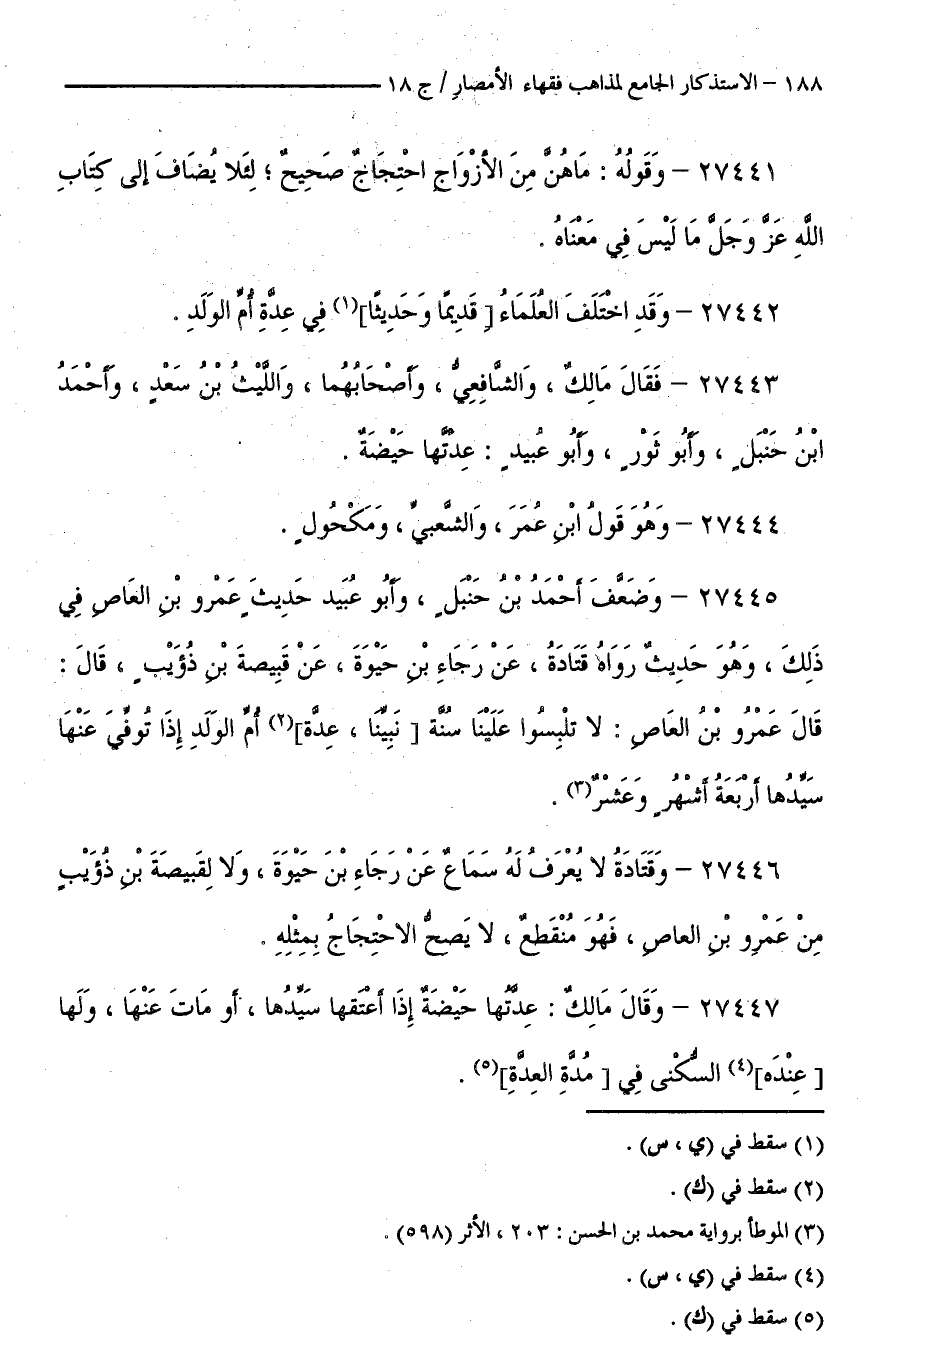 ١٨٨ – الاستذكار الجامع لمذاهب فقهاء الأمصار / ج ١٨
٢٧٤٤١ – وَقَولُهُ : مَاهُنَّ مِنَ الأَزْوَاجِ احْتِجَاجٌ صَحِيحٌ ؛ لِئَلا يُضَافَ إلى كِتَابِ
اللَّهِ عَزَّ وَجَلَّ مَا لَيْسَ فِي مَعْنَاهُ .
٢٧٤٤٢ – وَقَدِ اخْتَلَفَ العُلَمَاءُ [ قَدِيمًا وَحَدِيثًا](١) فِي عِدَّةِ أُمِّ الوَلَدِ .
٢٧٤٤٣ – فَقَالَ مَالِكٌ ، وَالشَّافِعِيُّ ، وَأَصْحَابُهُما ، وَاللَّيْثُ بْنُ سَعْدٍ ، وَأَحْمَدُ
ابْنُ حَنْبَلٍ ، وَأَبُو ثَوْرٍ ، وَأَبُو عُبيدٍ : عِدَّتُها حَيْضَةٌ .
٢٧٤٤٤ – وَهُوَ قَولُ ابْنِ عُمَرَ ، وَالشَّعبيِّ ، وَمَكْحُولٍ .
٢٧٤٤٥ – وَضَعَّفَ أَحْمَدُ بْنُ حَنْبَلٍ ، وَأَبُو عُبَيد حَدِيثَ عَمْرِو بْنِ العَاصِ فِي
ذَلِكَ ، وَهُوَ حَدِيثٌ رَوَاهُ قَتَادَةُ ، عَنْ رَجَاءِ بْنِ حَيْوَةَ ، عَنْ قَبِيصةَ بْنِ ذُؤَيْبٍ ، قَالَ :
قَالَ عَمْرُو بْنُ العَاصِ : لا تلْبِسُوا عَلَيْنَا سُنَّة [ نَبِيِّنَا ، عِدَّة](٢) أُمِّ الوَلَدِ إِذَا تُوفِّيَ عَنْهَا
سَيِّدُها أَرْبَعَةُ أَشْهُرٍ وَعَشْرٌ(٣) .
٢٧٤٤٦ – وَقَتَادَةُ لا يُعْرَفُ لَهُ سَمَاعٌ عَنْ رَجَاءِ بْنَ حَيْوَةَ ، وَلا لِقَبيصَةَ بْنِ ذُؤَيْبٍ
مِنْ عَمْرِو بْنِ العاصِ ، فَهُوَ مُنْقَطعٌ ، لا يَصحُّ الاحْتِجَاجُ بِمِثْلِهِ .
٢٧٤٤٧ – وَقَالَ مَالِكٌ : عِدَّتُها حَيْضَةٌ إِذَا أَعْتَقها سَيِّدُها ، أَو مَاتَ عَنْهَا ، وَلَها
[ عِنْدَه](٤) السُّكْنى فِي [ مُدَّةِ العِدَّةِ](٥) .
(١) سقط في (ي ، س) .
(٢) سقط في (ك) .
(٣) الموطأ برواية محمد بن الحسن : ٢٠٣ ، الأثر (٥٩٨) .
(٤) سقط في (ي ، س) .
(٥) سقط في (ك) .